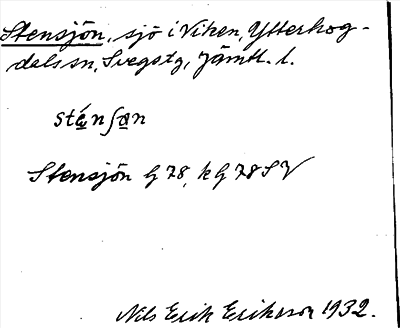 Stensjön, sjö i Viken, Ytterhog-
dals sn, Svegs tg, Jämtl. l.
sténʃan
Stensjön G 78, k G 78 SV
Nils Erik Erikson 1932.